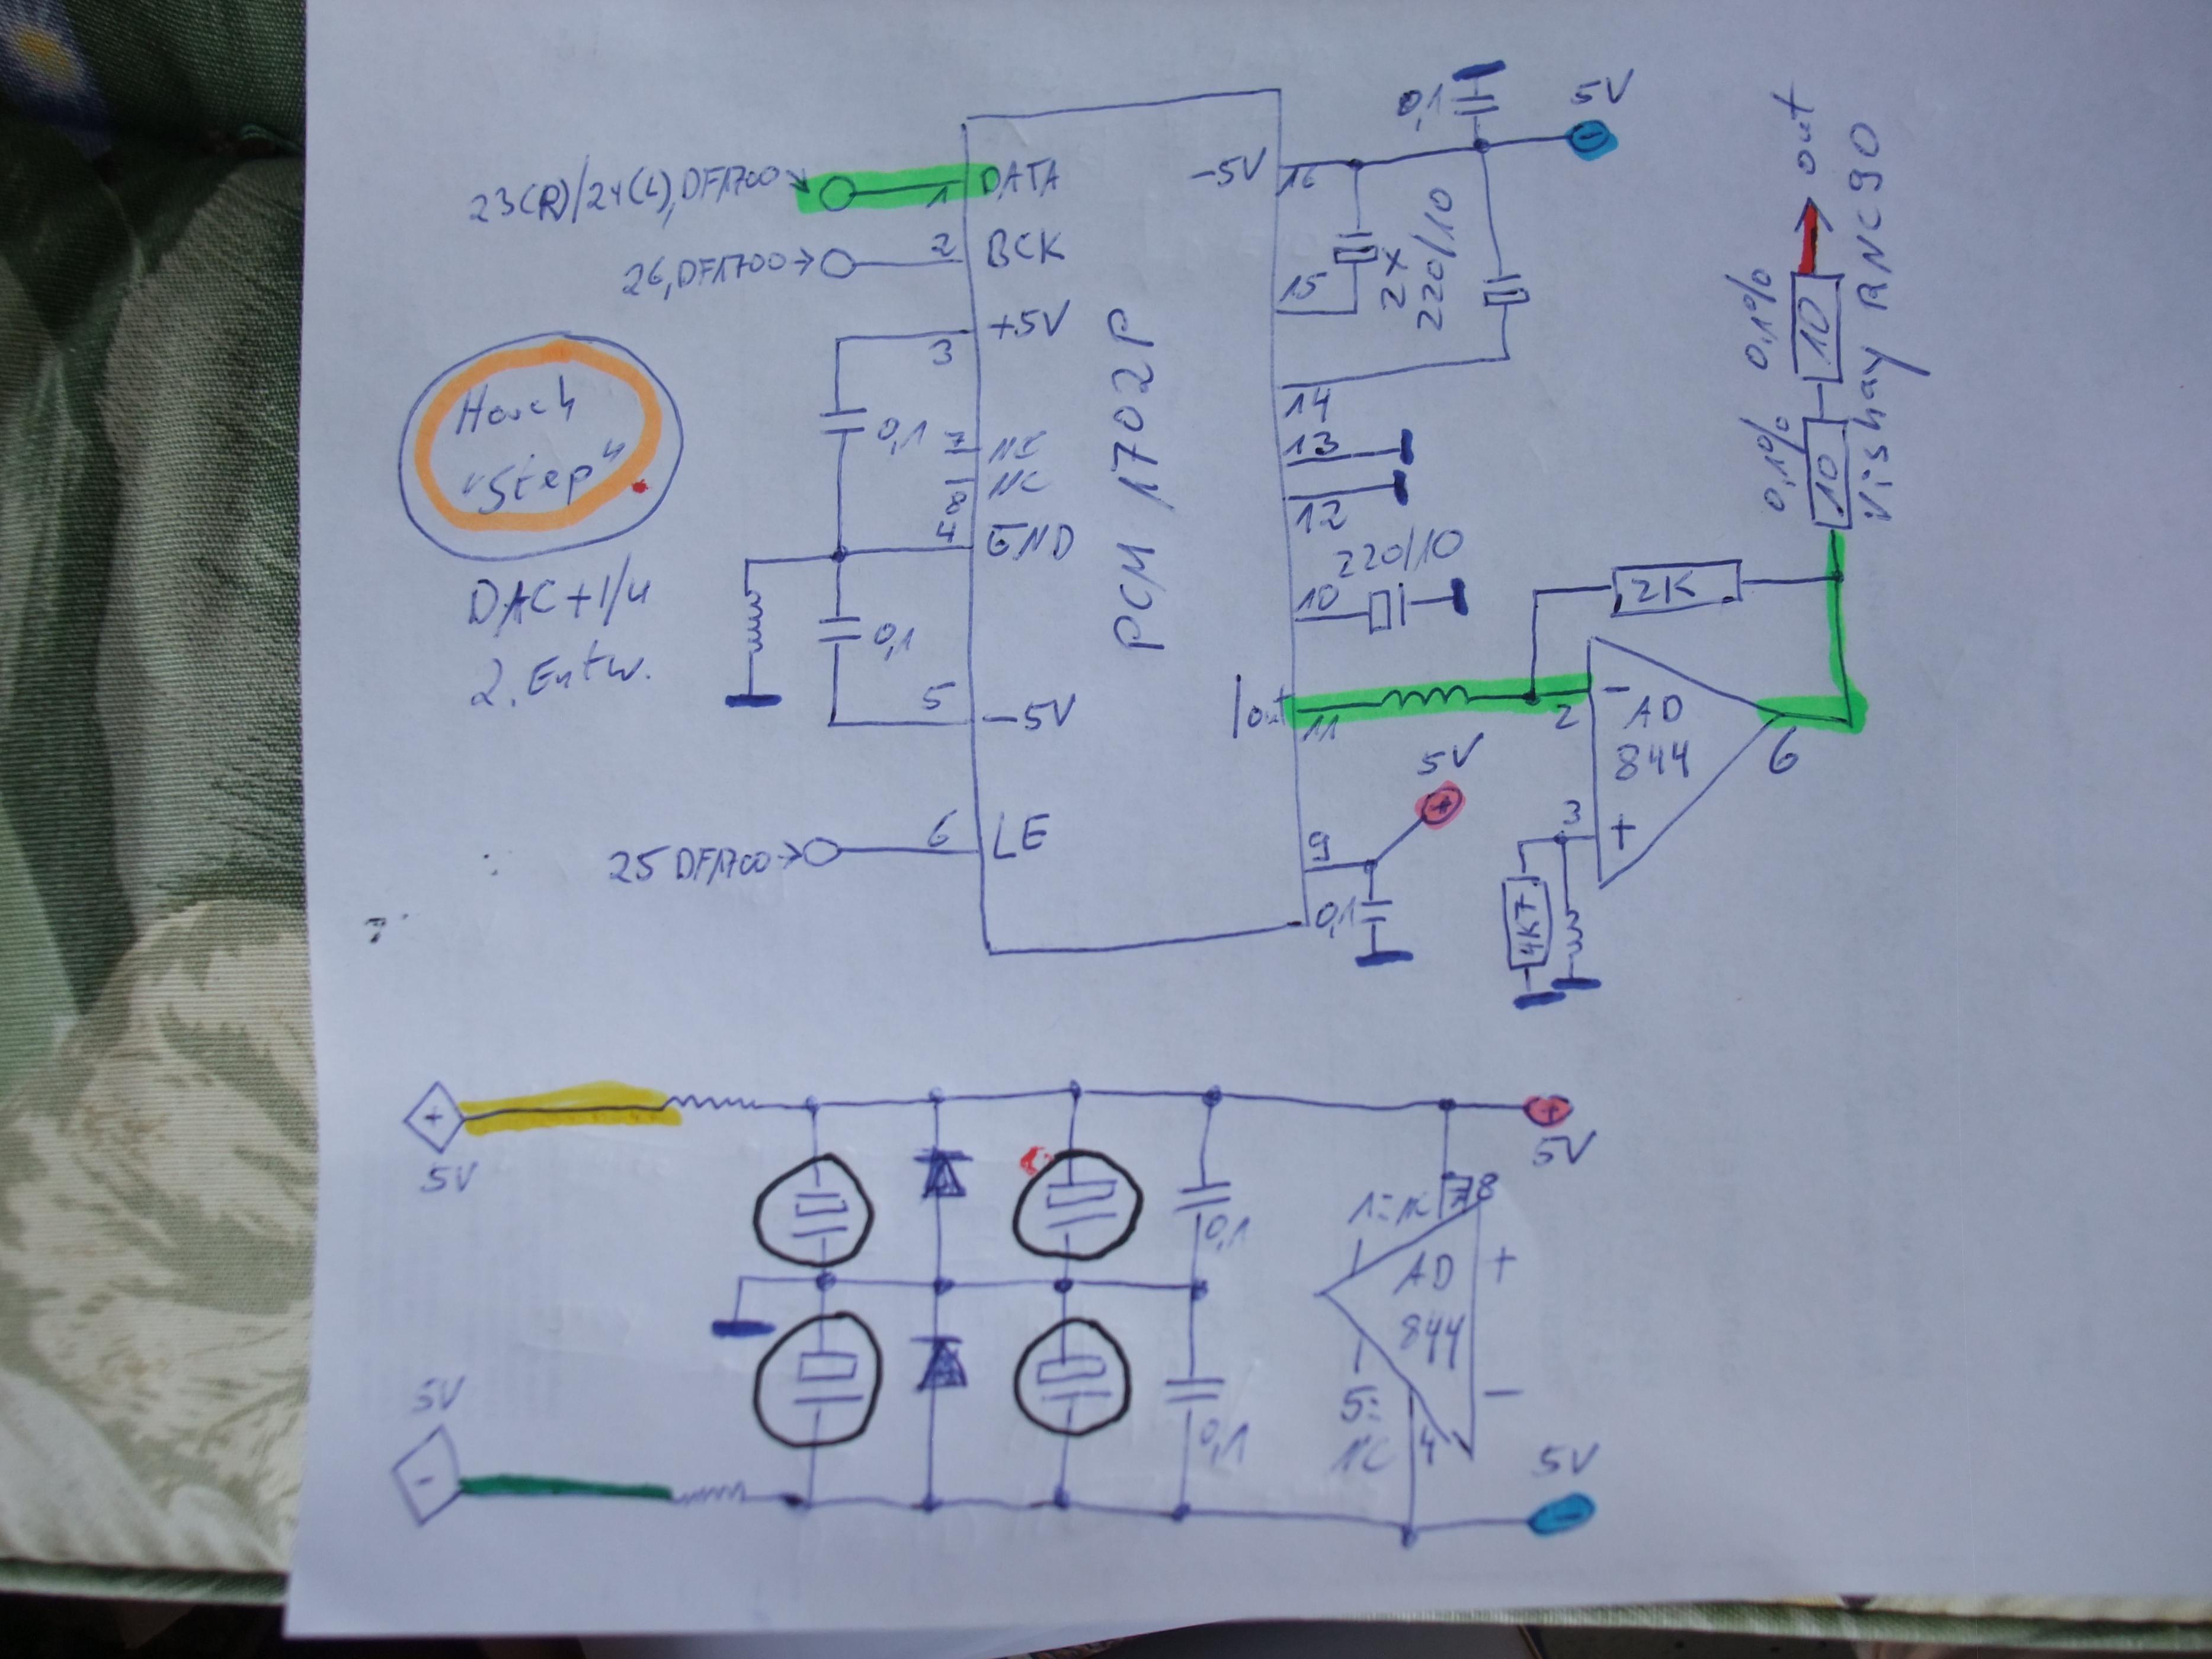 0,1
5V
-
23(R)/24(L),DF1700
1
DATA
-5V
16
26,DF1700
2
BCK
2x
220/10
15
3
+5V
14
Horch
"Step"
0,1
7
NC
8
NC
4
GND
13
12
220/10
10
DAC+I/U
2. Entw.
0,1
PCM 1702P
5
-5V
Iout
11
2K
2
-
AD
844
6
3
+
4K7
25 DF1700
6
LE
5V
+
9
0,1
out
0,1%
10
0,1%
10
Vishay RNC90
+
5V
+
5V
0,1
1=NC
7
8
AD
844
+
-
5=
NC
4
0,1
5V
-
5V
-